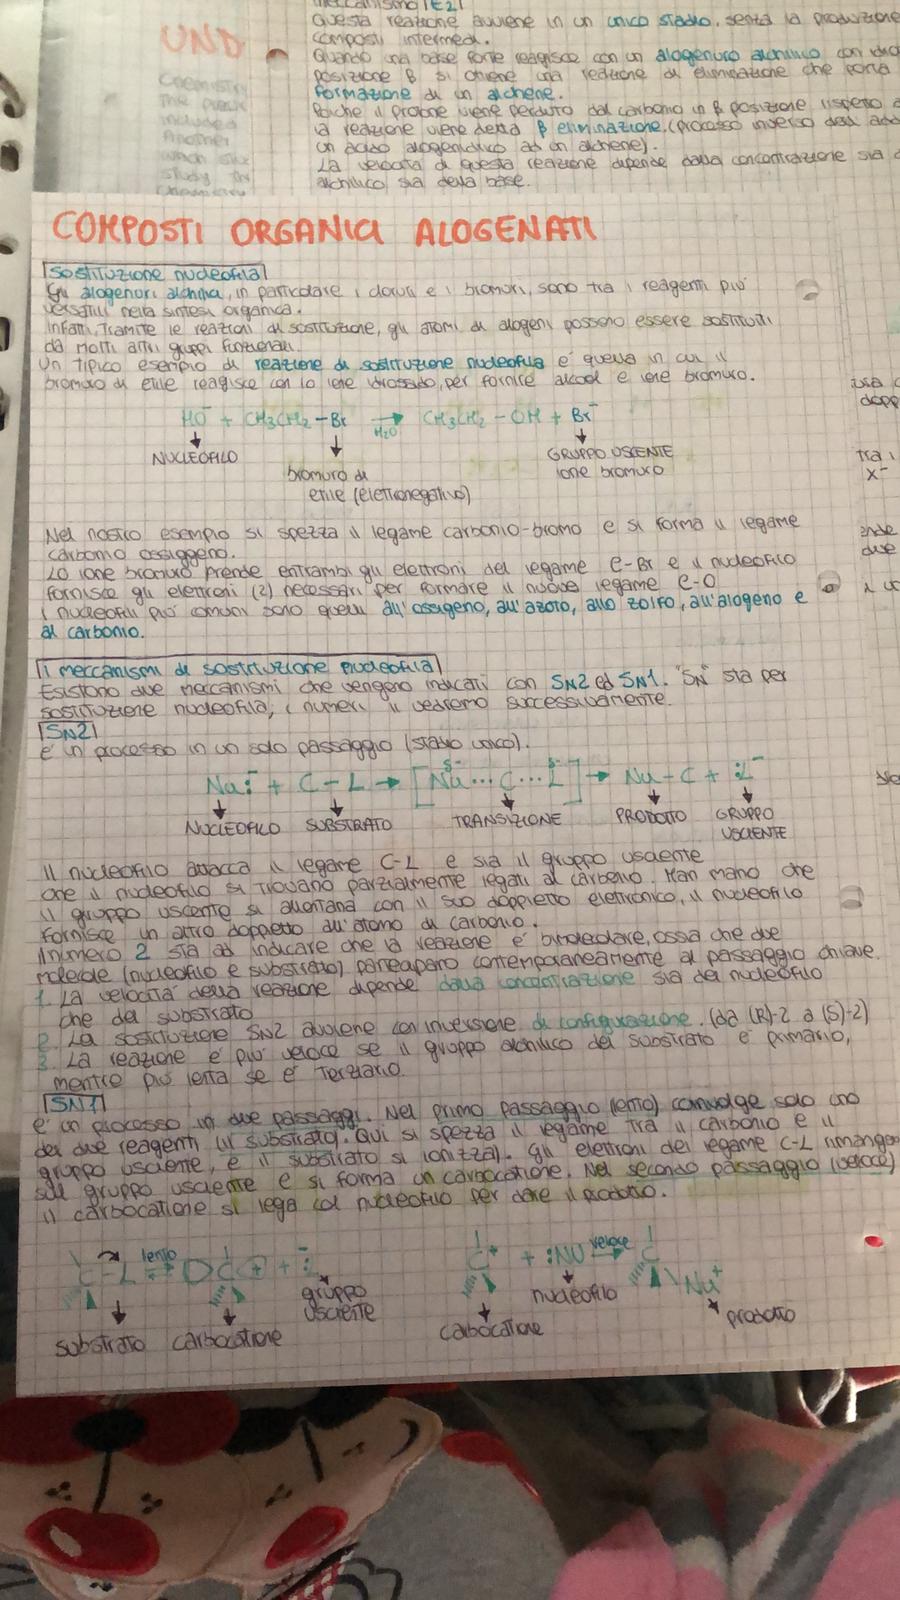 meccanismo (E2)
Questa reazione avviene in un unico stadio, senza la produzione
composti intermedi.
Quando una base forte reagisce con un alogenuro alchilico con
posizione β si ottiene una reazione di eliminazione che porta
formazione di un alchene.
Poiche il protone viene perduto dal carbonio in β posizione, rispetto a
la reazione viene detta β eliminazione. (processo inverso dell'
un acido alogenidrico ad un alchene).
La velocità di questa reazione dipende dalla concentrazione sia
alchilico sia della base.
UND
Chemistry
Another
study the
Chemistry
COMPOSTI ORGANICI ALOGENATI
Sostituzione nucleofila
Gli alogenuri alchilici, in particolare i cloruri e i bromuri, sono tra i reagenti piu'
versatili nella sintesi organica.
Infatti, tramite le reazioni di sostituzione, gli atomi di alogeni possono essere sostituiti
da molti altri gruppi funzionali.
Un tipico esempio di reazione di sostituzione nucleofila e' quella in cui il
bromuro di etile reagisce con lo ione idrossido, per fornire alcool e ione bromuro.
HO⁻ + CH3CH2-Br → H2O CH3CH2-OH + Br⁻
NUCLEOFILO
bromuro di
etile (elettronegativo)
GRUPPO USCENTE
ione bromuro
usa
dopp
tra i
x⁻
due
Nel nostro esempio si spezza il legame carbonio-bromo e si forma il legame
carbonio ossiggeno.
Lo ione bromuro prende entrambi gli elettroni del legame C-Br e il nucleofilo
fornisce gli elettroni (2) necessari per formare il nuovo legame C-O
i nucleofili più comuni sono quelli all'ossigeno, all'azoto, allo zolfo, all'alogeno e
al carbonio.
i meccanismi di sostituzione nucleofila
Esistono due meccanismi che vengono indicati con SN2 ed SN1. "SN" sta per
sostituzione nucleofila, i numeri li vedremo successivamente.
SN2
e' un processo in un solo passaggio (stadio unico).
Nu:⁻ + C-L → [Nu···C···L] → Nu-C + :L⁻
δ⁻ δ⁻
NUCLEOFILO SUBSTRATO TRANSIZIONE PRODOTTO GRUPPO
USCIENTE
Il nucleofilo attacca il legame C-L e sia il gruppo uscente
che il nucleofilo si trovano parzialmente legati al carbonio. Man mano che
il gruppo uscente si allontana con il suo doppietto elettronico, il nucleofilo
fornisce un altro doppietto all'atomo di carbonio.
Il numero 2 sta ad indicare che la reazione e' bimolecolare, ossia che due
molecole (nucleofilo e substrato) partecipano contemporaneamente al passaggio chiave.
1. La velocita' della reazione dipende dalla concentrazione sia del nucleofilo
che del substrato
2. La sostituzione SN2 avviene con inversione di configurazione. (da (R)-2 a (S)-2)
3. La reazione e' più veloce se il gruppo alchilico del substrato e' primario,
mentre più lenta se e' terziario.
SN1
e' un processo in due passaggi. Nel primo passaggio (lento) coinvolge solo uno
dei due reagenti (il substrato). Qui si spezza il legame tra il carbonio e il
gruppo uscente, e il substrato si ionizza). Gli elettroni del legame C-L rimangono
sul gruppo uscente e si forma un carbocatione. Nel secondo passaggio (veloce)
il carbocatione si lega col nucleofilo per dare il prodotto.
C-L lento C⊕ + :L⁻
C⁺ + :NU veloce C Nu⁺
gruppo
uscente
substrato carbocatione
nucleofilo
carbocatione
prodotto